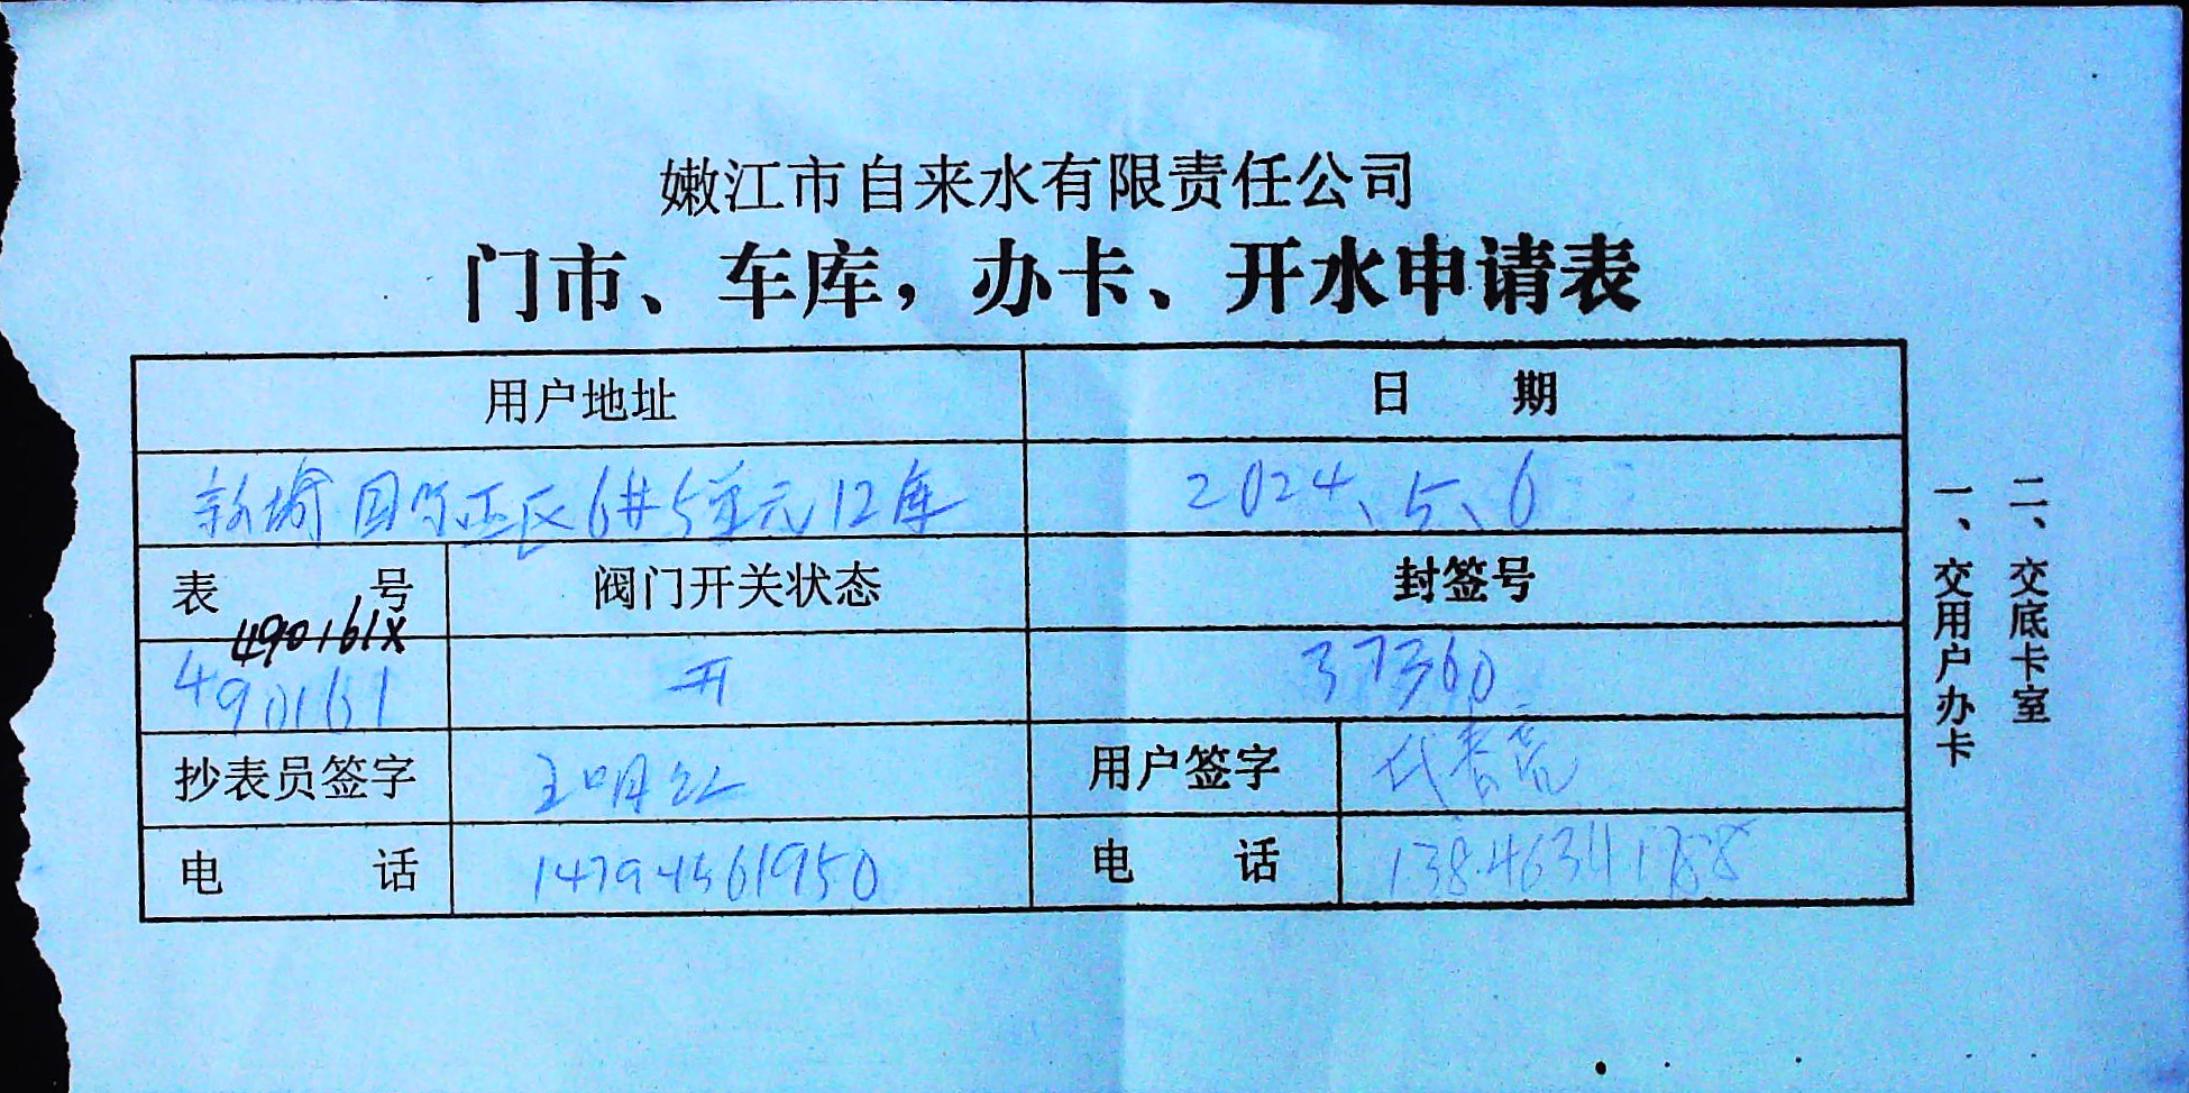 嫩江市自来水有限责任公司
门市、车库，办卡、开水申请表
用户地址 日 期
新瑜国际正区6#5单元12库 2024、5、6
表 号 阀门开关状态 封签号
490161X
490161 开 37360
抄表员签字 用户签字
电 话 14794561950 电 话 13846341788
一、交用户办卡
二、交底卡室